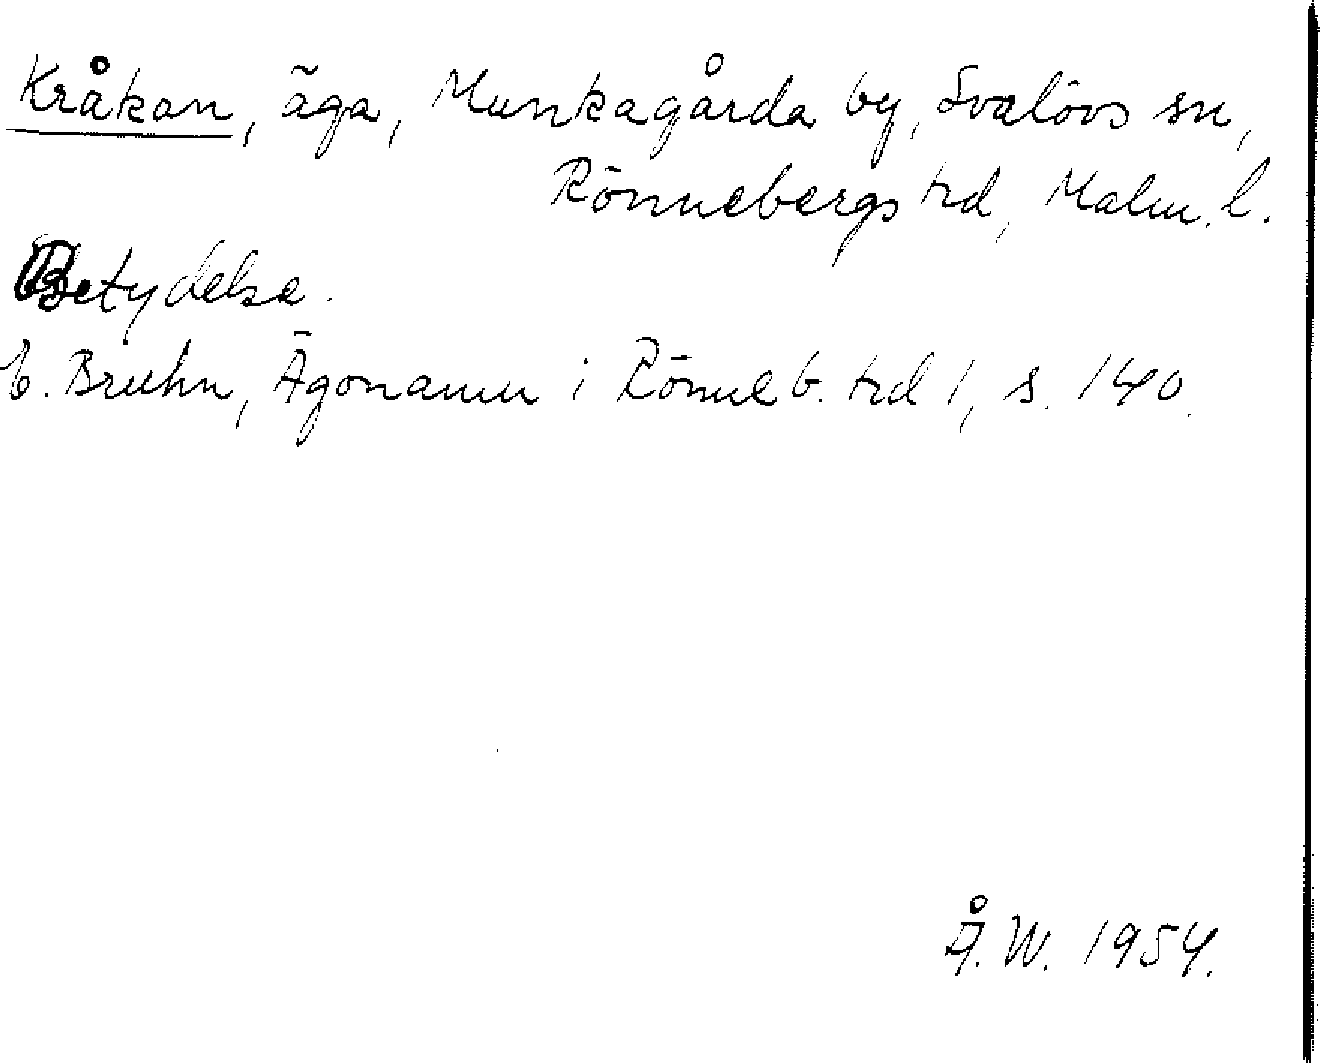 Kråkan, äga, Munkagårda by, Svalövs sn,
Rönnebergs hd, Malm. l.
Betydelse.
E. Bruhn, Ägonamn i Rönneb. hd 1, s. 140.
Å. W. 1954.